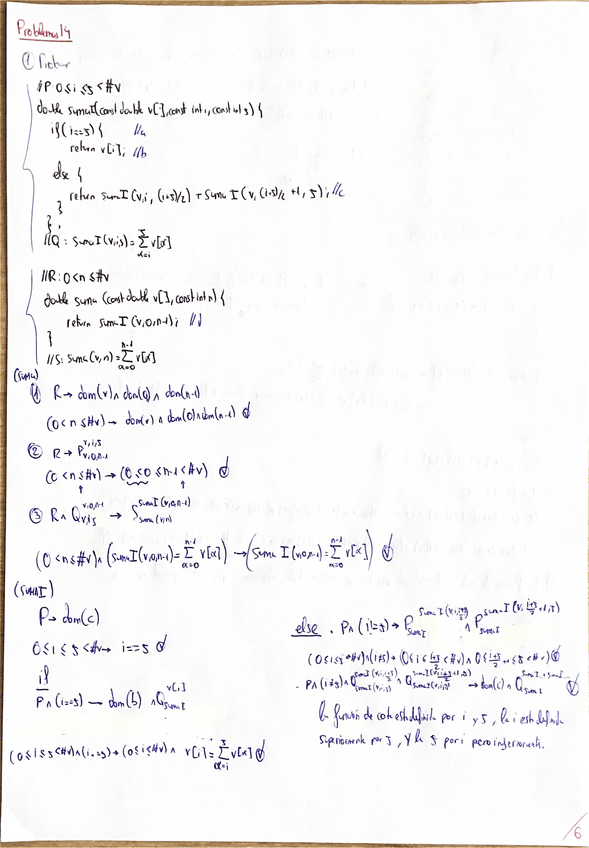 Problemas 14
① Probar
//P: 0≤i≤j<#v
double sumaI(const double v[], const int i, const int j) {
if (i==j) { //a
return v[i]; //b
}
else {
return sumaI(v,i,(i+j)/2) + sumaI(v,(i+j)/2+1,j); //c
}
};
//Q: sumaI(v,i,j)=∑_{α=i}^{j} v[α]
//R: 0<n≤#v
double suma (const double v[], const int n) {
return sumaI(v,0,n-1); //d
}
//S: suma(v,n)=∑_{α=0}^{n-1} v[α]
(suma)
① R → dom(v) ∧ dom(0) ∧ dom(n-1)
(0<n≤#v) → dom(v) ∧ dom(0) ∧ dom(n-1)
② R → P^{v,i,j}_{v,0,n-1}
(0<n≤#v) → (0≤0≤n-1<#v)
③ R ∧ Q^{v,0,n-1}_{v,i,j} → S^{sumaI(v,0,n-1)}_{suma(v,n)}
(0<n≤#v) ∧ (sumaI(v,0,n-1)=∑_{α=0}^{n-1} v[α]) → (sumaI(v,0,n-1)=∑_{α=0}^{n-1} v[α])
(sumaI)
P → dom(c)
0≤i≤j<#v → i==j
if
P ∧ (i==j) → dom(b) ∧ Q^{v[i]}_{sumaI}
(0≤i≤j<#v) ∧ (i==j) → (0≤i≤#v) ∧ v[i]=∑_{α=i}^{j} v[α]
else . P ∧ (i!=j) → P^{sumaI(v,i,i+j/2)}_{sumaI} ∧ P^{sumaI(v,i+j/2+1,j)}_{sumaI}
(0≤i≤j<#v) ∧ (i≠j) → (0≤i≤ i+j/2 <#v) ∧ 0≤ i+j/2 +1≤j<#v)
. P ∧ (i≠j) ∧ Q ∧ Q → dom(c) ∧ Q^{sumaI+sumaI...}_{sumaI}
la función de cota está definida por i y j, la i está definida
superiormente por j, y la j por i pero inferiormente.
/6